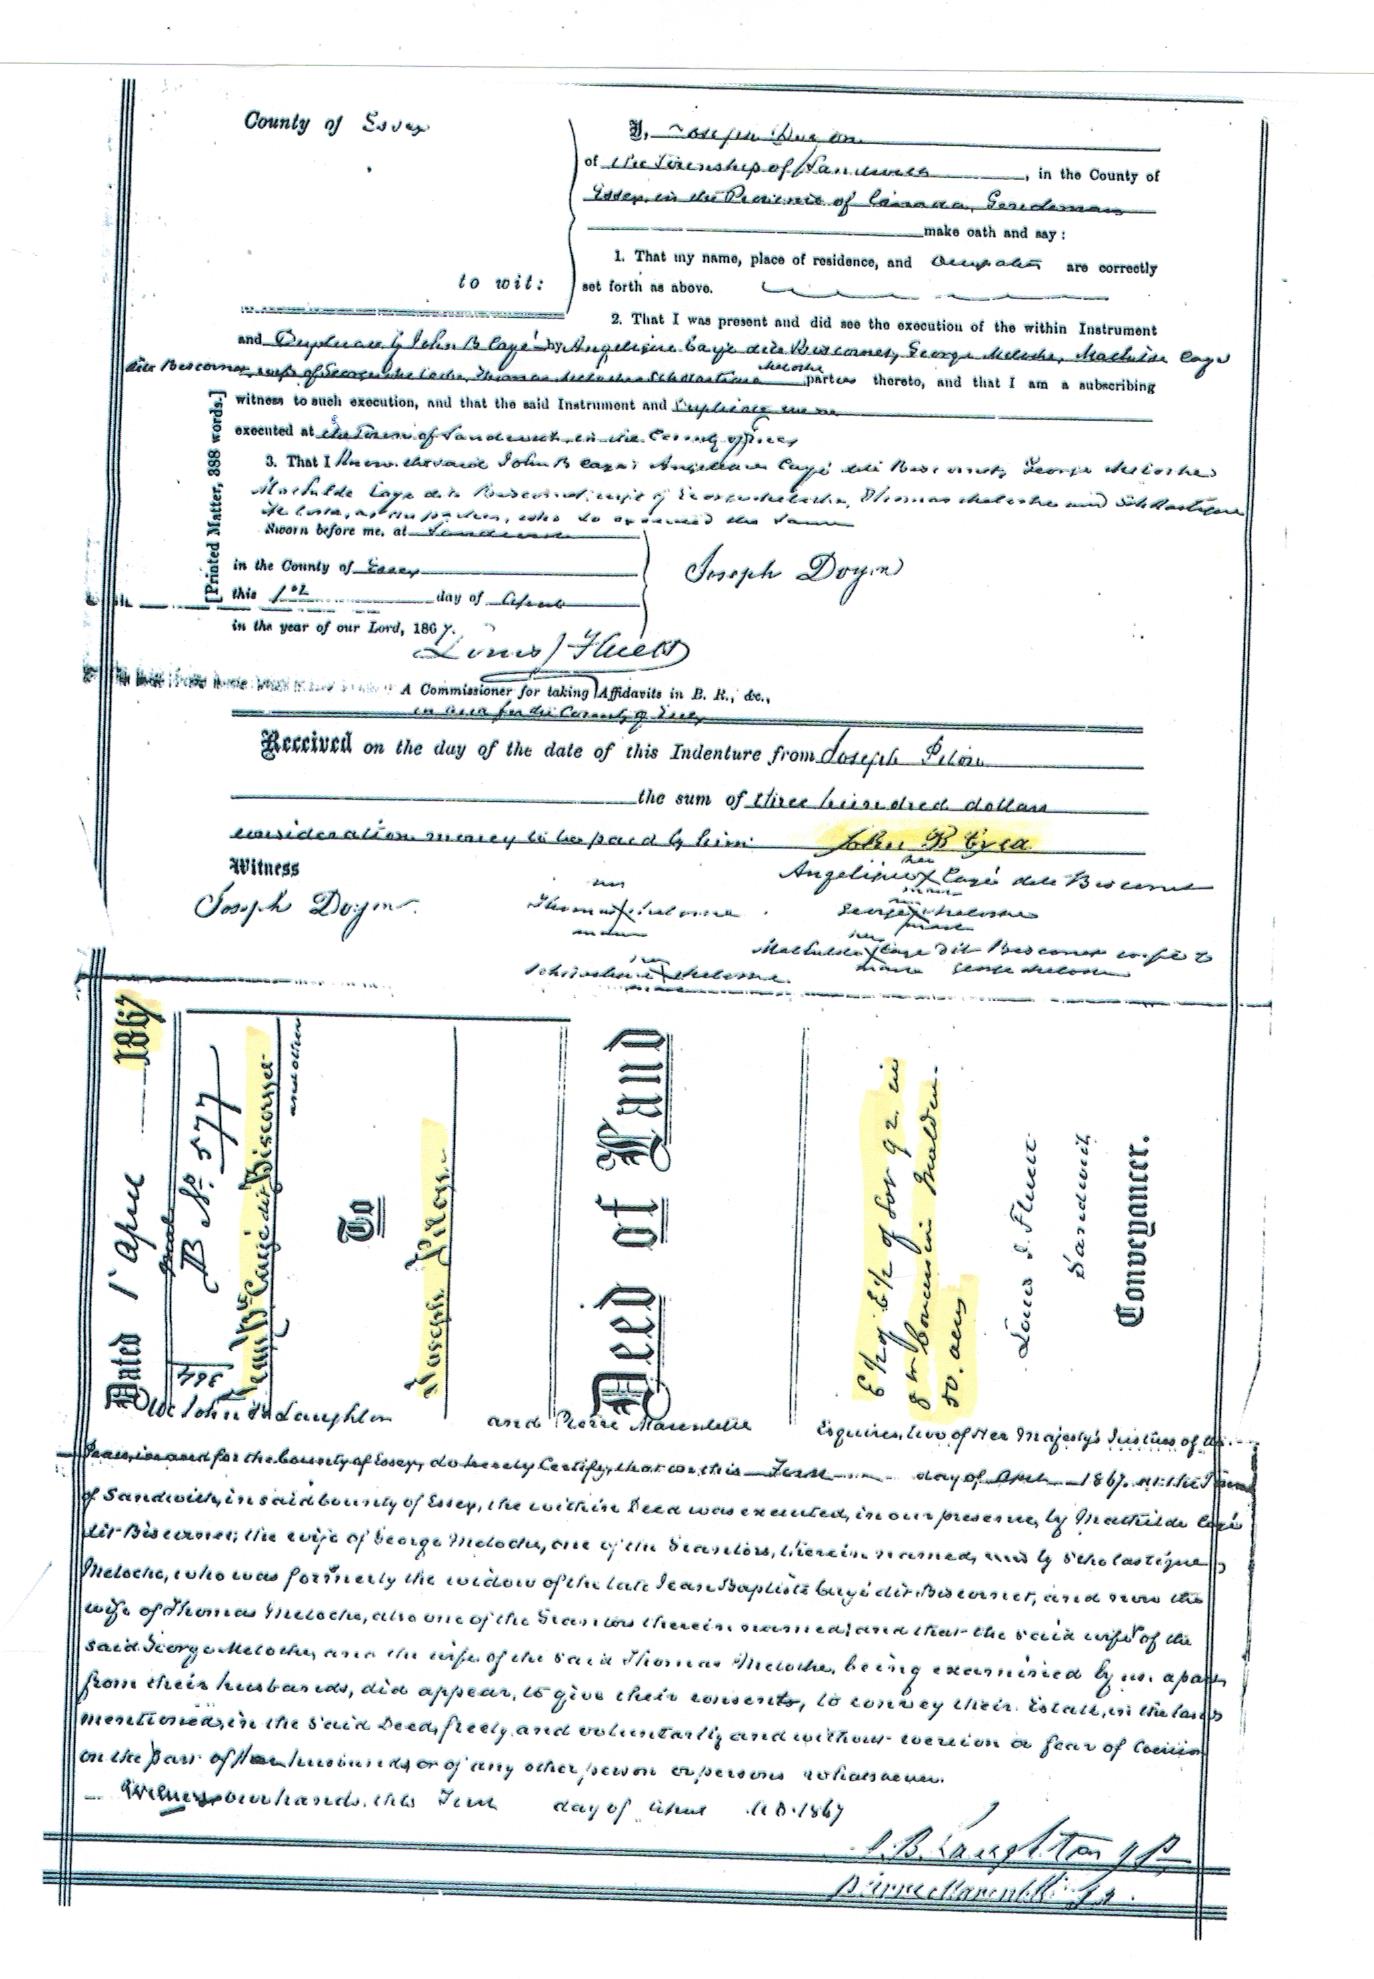 County of Essex
to wit:
I, Joseph Doyon
of the Township of Sandwich, in the County of
Essex, in the Province of Canada, Gentleman
make oath and say:
1. That my name, place of residence, and occupation are correctly
set forth as above.
2. That I was present and did see the execution of the within Instrument
and Duplicate by John B Cayé by Angelique Cayé dite Biscornet, George Meloche, Mathilde Caye
dite Biscornet, wife of George Meloche, Thomas Meloche & Scholastique Meloche parties thereto, and that I am a subscribing
witness to such execution, and that the said Instrument and Duplicate were
executed at the Town of Sandwich, in the County of Essex
3. That I know the said John B Cayé Angelique Cayé dite Biscornet, George Meloche
Mathilde Caye dite Biscornet, wife of George Meloche, Thomas Meloche and Scholastique
Meloche, parties, who executed the same
[Printed Matter, 388 words.]
Sworn before me, at Sandwich
in the County of Essex
this 1st day of April
in the year of our Lord, 1867.
Joseph Doyon
Louis J Fluett
A Commissioner for taking Affidavits in B. R., &c.,
in and for the County of Essex
Received on the day of the date of this Indenture from Joseph Pilon
the sum of three hundred dollars
consideration money to be paid by him
John B Cyea
Witness
Joseph Doyon
Angelique her X mark Cayé dite Biscornet
Thomas his X mark Meloche
George his X mark Meloche
Mathilde her X mark Caye dit Biscornet wife to George Meloche
Scholastique her X Meloche
Dated 1st April 1867
B No. 577
364
Jean Bte Cayé dit Biscornet
and others
To
Joseph Pilon
Deed of Land
E ½ of E ½ of Lot 92 in
8th Concession Malden
50 acres
Louis J. Fluett
Sandwich
Conveyancer.
We John B Laughton and Pierre Marentette Esquires, two of Her Majesty's Justices of the
Peace, in and for the County of Essex, do hereby Certify, that on this First day of April 1867. at the Town
of Sandwich, in said County of Essex, the within Deed was executed, in our presence, by Mathilde Cayé
dit Biscornet, the wife of George Meloche, one of the Grantors, therein named, and by Scholastique
Meloche, who was formerly the widow of the late Jean Baptiste Cayé dit Biscornet, and now the
wife of Thomas Meloche, also one of the Grantors therein named; and that the said wife of the
said George Meloche, and the wife of the said Thomas Meloche, being examined by us, apart
from their husbands, did appear, to give their consents, to convey their Estate, in the lands
mentioned, in the said Deed, freely and voluntarily and without coercion or fear of Coercion
on the part of their husbands, or of any other person or persons whatsoever.
Witness our hands, this First day of April A D. 1867
J. B. Laughton J P.
Pierre Marentette J P.